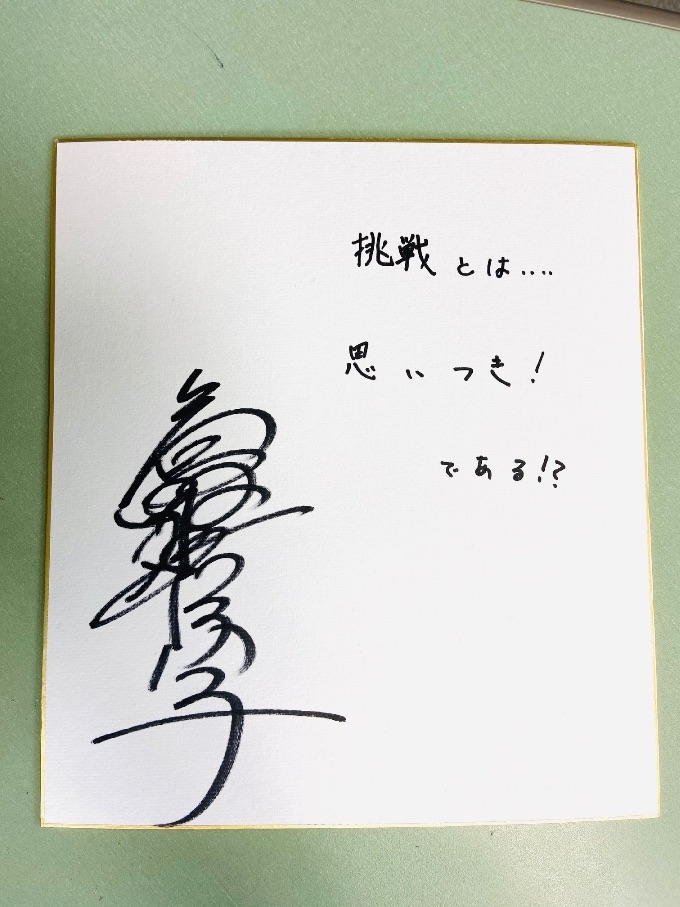 挑戦とは‥‥
思いつき!
である!?